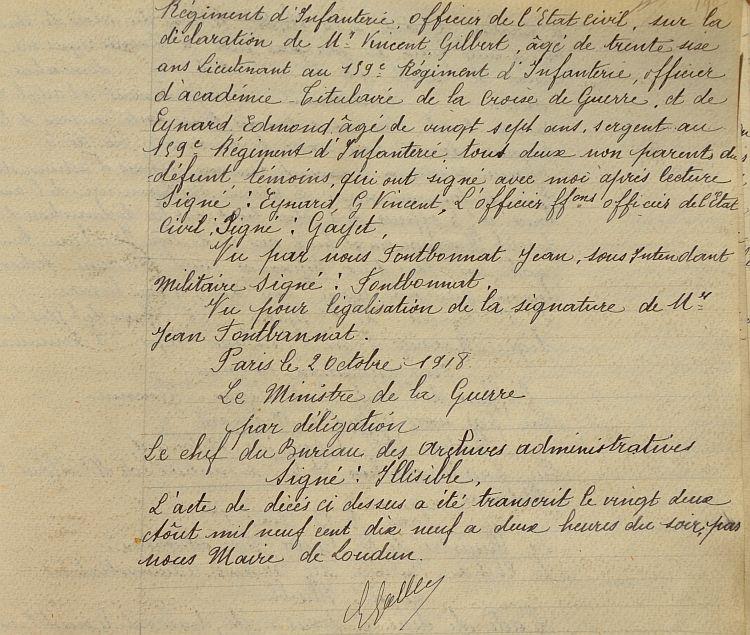 Régiment d'Infanterie, officier de l'Etat Civil, sur la
déclaration de Mr Vincent, Gilbert, âgé de trente sixe
ans Lieutenant au 159e Régiment d'Infanterie, officier
d'académie Titulaire de la Croise de Guerre, et de
Eynard Edmond, âgé de vingt sept ans, sergent au
159e Régiment d'Infanterie, tous deux non parents du
défunt temoins, qui ont signé avec moi après lecture
Signé : Eynard, G Vincent, L'officier ffons officier de l'Etat
Civil, Signé : Gayet,
Vu par nous Fontbonnat Jean, sous Intendant
Militaire Signé : Fontbonnat,
Vu pour légalisation de la signature de Mr
Jean Fontbannat.
Paris le 2 Octobre 1918
Le Ministre de la Guerre
par déligation
Le chef du Bureau des Archives administratives
Signé : Illisible,
L'acte de décés ci dessus a été transcrit le vingt deux
Août mil neuf cent dix neuf a deux heures du soir, par
nous Maire de Loudun.